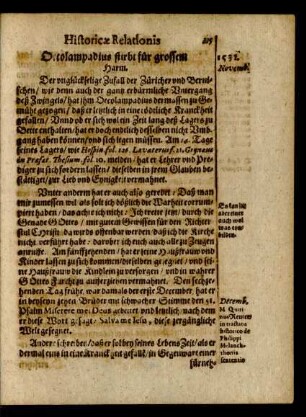 Historicæ Relationis
Oecolampadius stirbt für grossem
Harm.
Der unglückselige Zufall der Züricher und Bernischen
/ wie denn auch der gantz erbärmliche Untergang
deß Zwinglis / hat ihm Oecolampadius der massen zu Gemühte
gezogen / daß er leylich in eine tödliche Kranckheit
gefallen / Unnd ob er sich wol ein Zeit lang deß Lagers zu
Bette enthalten / hat er doch endlich desselben nicht Umbgang
haben können / und sich legen müssen. Am 15. Tage
seines Lagers / wie Hospin fol. Lavaterus, f. Grynæus
in Præfat. Thesium fol. 10. melden / hat er Lehrer und Prediger
zu sich fordern lassen / dieselben in ihrem Glauben bestätiget
/ zur Lieb und Eynigkeit vermahnet.
Unter andern hat er auch also geredet: Daß man
mir zumessen wil als solt ich böslich die Warheit corrumpirt
haben / das acht ich nicht / Ich trette jetzt / durch die
Genade Gottes / mit gutem Gewissen für den Richterstul
Christi / da wird es offenbar werden / daß ich die Kirche
nicht verführt habe / darüber ich euch auch alle zu Zeugen
anruffe. Am fünffzehenden / hat er seine Haußfrau und
Kinder lassen zu sich kommen / dieselben gesegnet / und seine
Haußfrau die Kindlein zu versorgen / und in wahrer
Gottes Forcht zu aufferziehen vermahnet. Den sechzehenden
Tag früh / war damals der erste December / hat er
in beyseyn zehen Brüder mit schwacher Stimme den 51.
Psalm Miserere mei Deus gebetet / und leylich / nach dem
er diese Wort gesagt / Salva me Iesu, diese zergängliche
Welt gesegnet.
Andere schreiben / daß er solbey seines Lebens Zeit / als er
dermal eins in eine Kranckheit gefallen / in Gegenwart einer
fürneh-
1532.
Novemb.
aber
man
Decemb.
M. Quirinus
Reuterus
in tractatu
historico de
Philippi
Melanchthonis
sententia